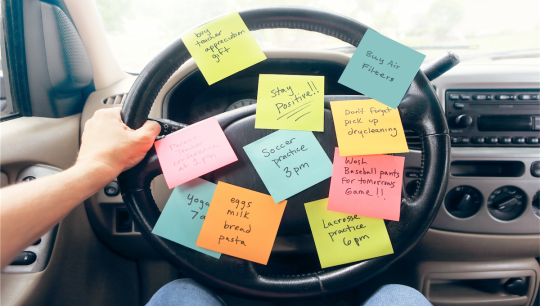 buy
teacher
appreciation
gift
Buy Air
Filters
Stay
Positive!!
Don't Forget
pick up
drycleaning
Soccer
practice
3pm
Wash
Baseball pants
for tomorrows
Game!!
Yoga
7a
eggs
milk
bread
pasta
Lacrosse
practice
6pm